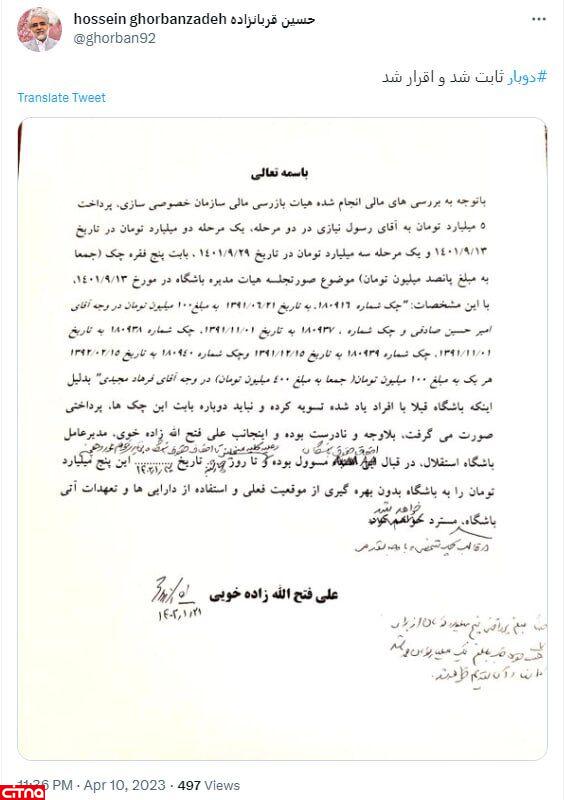 hossein ghorbanzadeh حسین قربانزاده
@ghorban92
#دوبار ثابت شد و اقرار شد
Translate Tweet
باسمه تعالی
باتوجه به بررسی های مالی انجام شده هیات بازرسی مالی سازمان خصوصی سازی، پرداخت
۵ میلیارد تومان به آقای رسول نیازی در دو مرحله، یک مرحله دو میلیارد تومان در تاریخ
۱۴۰۱/۹/۱۳ و یک مرحله سه میلیارد تومان در تاریخ ۱۴۰۱/۹/۲۹، بابت پنج فقره چک (جمعا
به مبلغ پانصد میلیون تومان) موضوع صورتجلسه هیات مدیره باشگاه در مورخ ۱۴۰۱/۹/۱۳،
با این مشخصات: "چک شماره ۱۸۰۹۱۶، به تاریخ ۱۳۹۱/۰۶/۲۱ به مبلغ ۱۰۰ میلیون تومان در وجه آقای
امیر حسین صادقی و چک شماره ۱۸۰۹۳۷، به تاریخ ۱۳۹۱/۱۱/۰۱، چک شماره ۱۸۰۹۳۸ به تاریخ
۱۳۹۱/۱۱/۰۱، چک شماره ۱۸۰۹۳۹ به تاریخ ۱۳۹۱/۱۲/۱۵ وچک شماره ۱۸۰۹۴۰ به تاریخ ۱۳۹۲/۰۲/۱۵
هر یک به مبلغ ۱۰۰ میلیون تومان( جمعا به مبلغ ۴۰۰ میلیون تومان) در وجه آقای فرهاد مجیدی" بدلیل
اینکه باشگاه قبلا با افراد یاد شده تسویه کرده و نباید دوباره بابت این چک ها، پرداختی
صورت می گرفت، بلاوجه و نادرست بوده و اینجانب علی فتح الله زاده خوی، مدیرعامل
باشگاه استقلال، در قبال مسوول بوده و تا روز تاریخ ۱۴۰۲/۰۱/ این پنج میلیارد
تومان را به باشگاه بدون بهره گیری از موقعیت فعلی و استفاده از دارایی ها و تعهدات آتی
باشگاه، مسترد خواهد شد
علی فتح الله زاده خویی
۱۴۰۲،۱،۲۱
11:36 PM · Apr 10, 2023 · 497 Views
CITNA